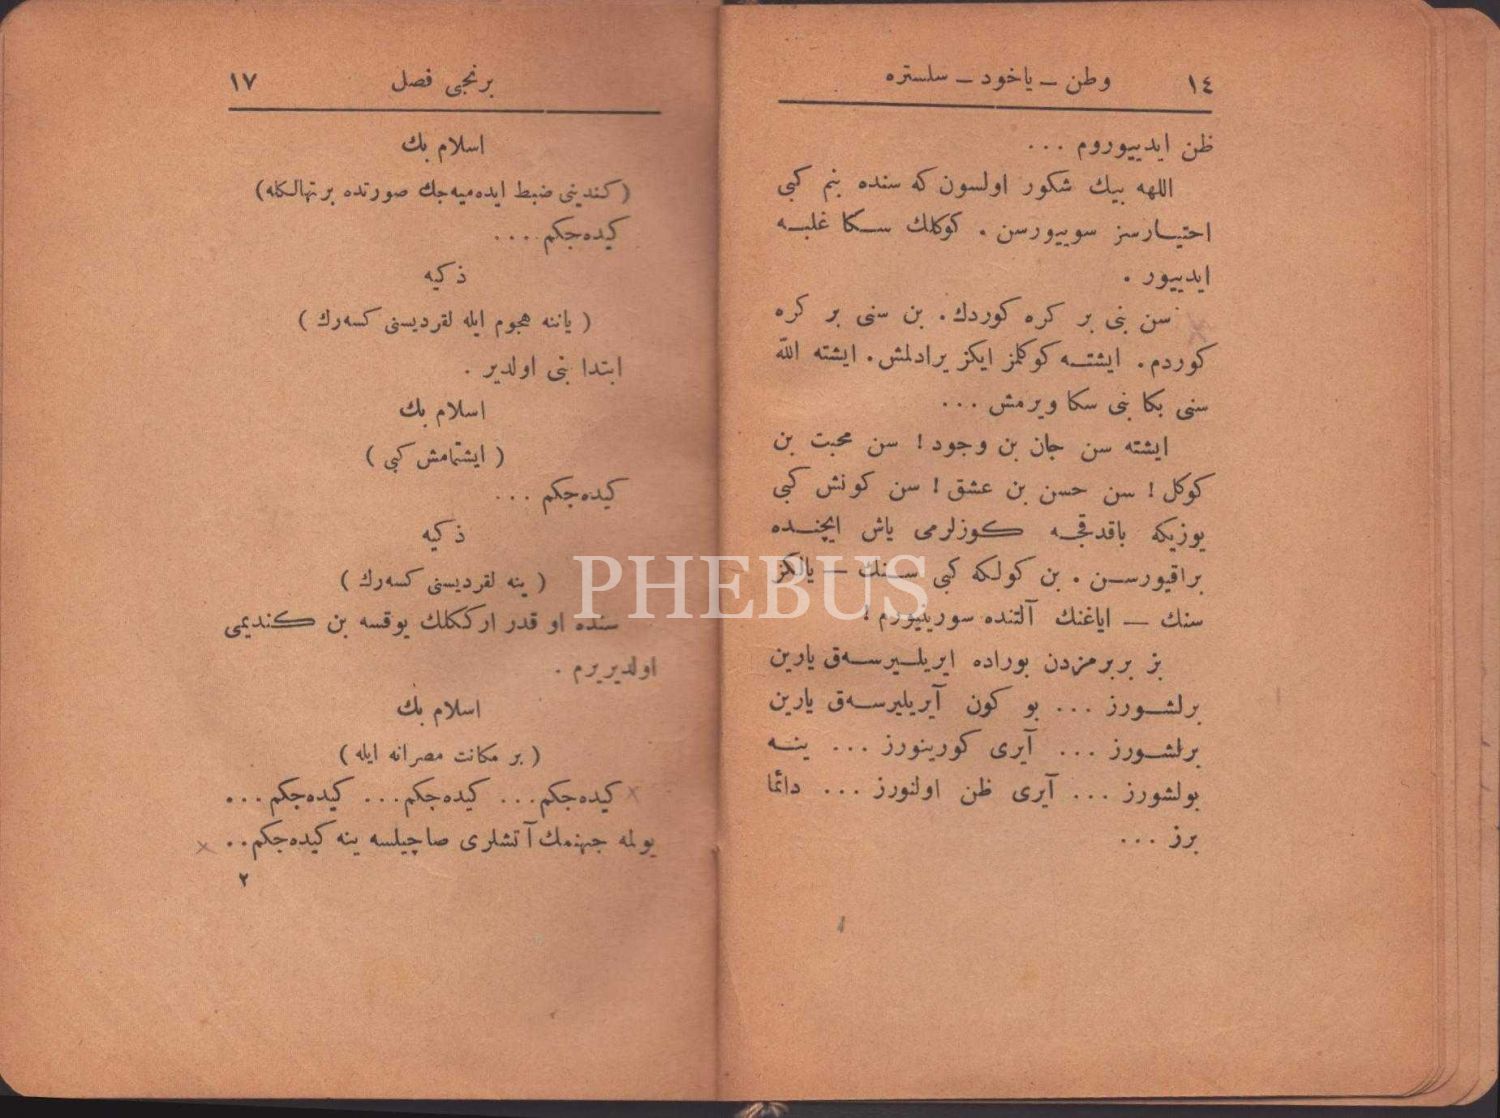 ١٤ وطن ــ ياخود ــ سلستره
ظن ايدييوروم ...
اللهه بيك شكور اولسون كه سنده بنم كبى
احتيارسز سوييورسن . كوكلك سكا غلبه
ايدييور .
سن بنى بر كره كوردك . بن سنى بر كره
كوردم . ايشته كوكلمز ايكز يرادلمش . ايشته الله
سنى بكا بنى سكا ويرمش ...
ايشته سن جان بن وجود ! سن محبت بن
كوكل ! سن حسن بن عشق ! سن كونش كبى
يوزيكه باقدقجه كوزلرمى ياش ايچنده
براقيورسن . بن كولكه كبى سنك — يالكز
سنك — اياغنك آلتنده سورينيورم !
بز بربرمزدن بوراده ايريليرسه‌ق يارين
برلشورز ... بو كون آيريليرسه‌ق يارين
برلشورز ... آيرى كورينورز ... ينه
بولشورز ... آيرى ظن اولنورز ... دائما
برز ...
برنجى فصل ١٧
اسلام بك
( كندينى ضبط ايده‌ميه‌جك صورتده بر تهالكله )
كيده‌جكم ....
ذكيه
( ياننه هجوم ايله لقرديسنى كسه‌رك )
ابتدا بنى اولدير .
اسلام بك
( ايشتمامش كبى )
كيده‌جكم ...
ذكيه
( ينه لقرديسنى كسه‌رك )
سنده او قدر اركلك يوقسه بن كنديمى
اولديريرم .
اسلام بك
( بر مكانت مصرانه ايله )
كيده‌جكم ... كيده‌جكم ... كيده‌جكم ...
يولمه جهنمك آتشلرى صاچيلسه ينه كيده‌جكم ..
٢
PHEBUS